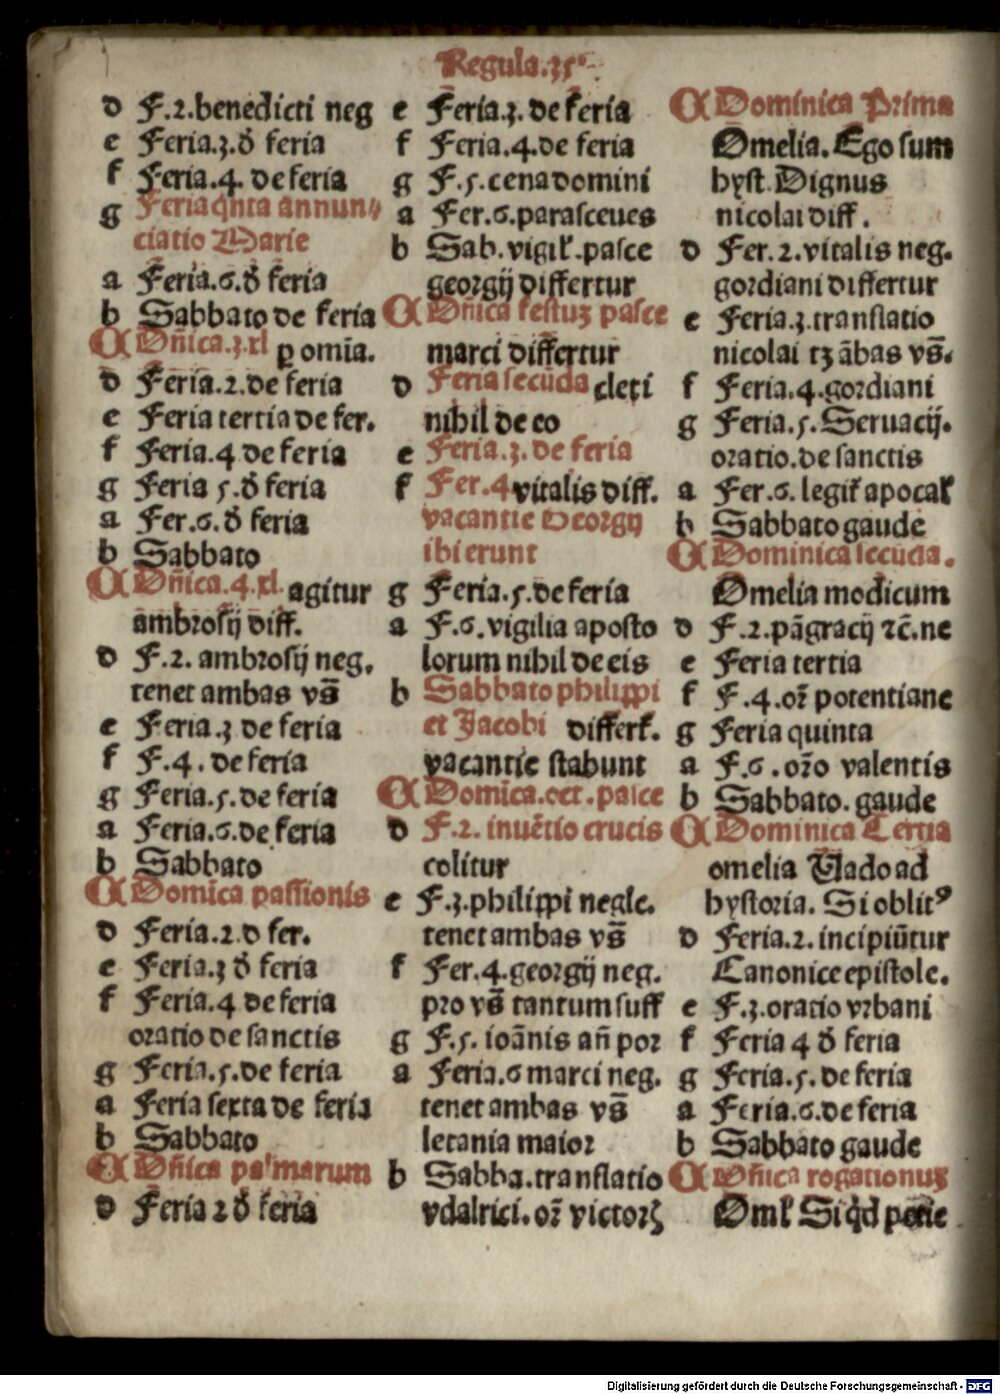 Regula.35
d F.2.benedicti neg
e Feria.3.ď feria
f Feria.4. de feria
g Feria qnta annun⸗
ciatio Marie
a Feria.6.ď feria
b Sabbato de feria
A Dñica.3.xl ꝑ omĩa.
d Feria.2.de feria
e Feria tertia de fer.
f Feria.4 de feria
g Feria 5.ď feria
a Fer.6.ď feria
b Sabbato
A Dñica.4.xl. agitur
ambrosij diff.
d F.2. ambrosij neg.
tenet ambas vs̃
e Feria.3 de feria
f F.4. de feria
g Feria.5.de feria
a Feria.6.de feria
b Sabbato
A Domĩca passionis
d Feria.2.d fer.
e Feria.3 ď feria
f Feria.4 de feria
oratio de sanctis
g Feria.5.de feria
a Feria sexta de feria
b Sabbato
A Dñica palmarum
d Feria 2 ď feria
e Feria.3.de feria
f Feria.4.de feria
g F.5.cena domini
a Fer.6.parasceues
b Sab.vigiľ.pasce
georgij differtur
A Dñica festuꝫ pasce
marci differtur
d Feria secũda cleti
nihil de eo
e Feria.3.de feria
f Fer.4 vitalis diff.
vacantie Georgij
ibi erunt
g Feria.5.de feria
a F.6.vigilia aposto
lorum nihil de eis
b Sabbato philippi
et Jacobi differt.
vacantie stabunt
A Domĩca.oct.pasce
d F.2. inuẽtio crucis
colitur
e F.3.philippi negle.
tenet ambas vs̃
f Fer.4.georgij neg.
pro vs̃ tantum suff
g F.5. ioãnis añ por
a Feria.6 marci neg.
tenet ambas vs̃
letania maior
b Sabba.translatio
vdalrici.oꝛ̃ victorꝫ
A Dominica Prima
Omelia. Ego sum
hyst. Dignus
nicolai diff.
d Fer.2.vitalis neg.
gordiani differtur
e Feria.3.translatio
nicolai tꝫ ãbas vs̃.
f Feria.4.gordiani
g Feria.5.Seruacij.
oratio.de sanctis
a Fer.6. legiť apocaľ
b Sabbato gaude
A Dominica secũda.
Omelia modicum
d F.2.pãgracij ꝛc̃.ne
e Feria tertia
f F.4.oꝛ̃ potentiane
g Feria quinta
a F.6.oꝛ̃o valentis
b Sabbato. gaude
A Dominica Tertia
omelia Vado ad
hystoria. Si oblitꝰ
d Feria.2. incipiũtur
Canonice epistole.
e F.3.oratio vrbani
f Feria 4 ď feria
g Feria.5. de feria
a Feria.6.de feria
b Sabbato gaude
A Dñica rogationuꝫ
Omľ Si qd petie
Digitalisierung gefördert durch die Deutsche Forschungsgemeinschaft - DFG